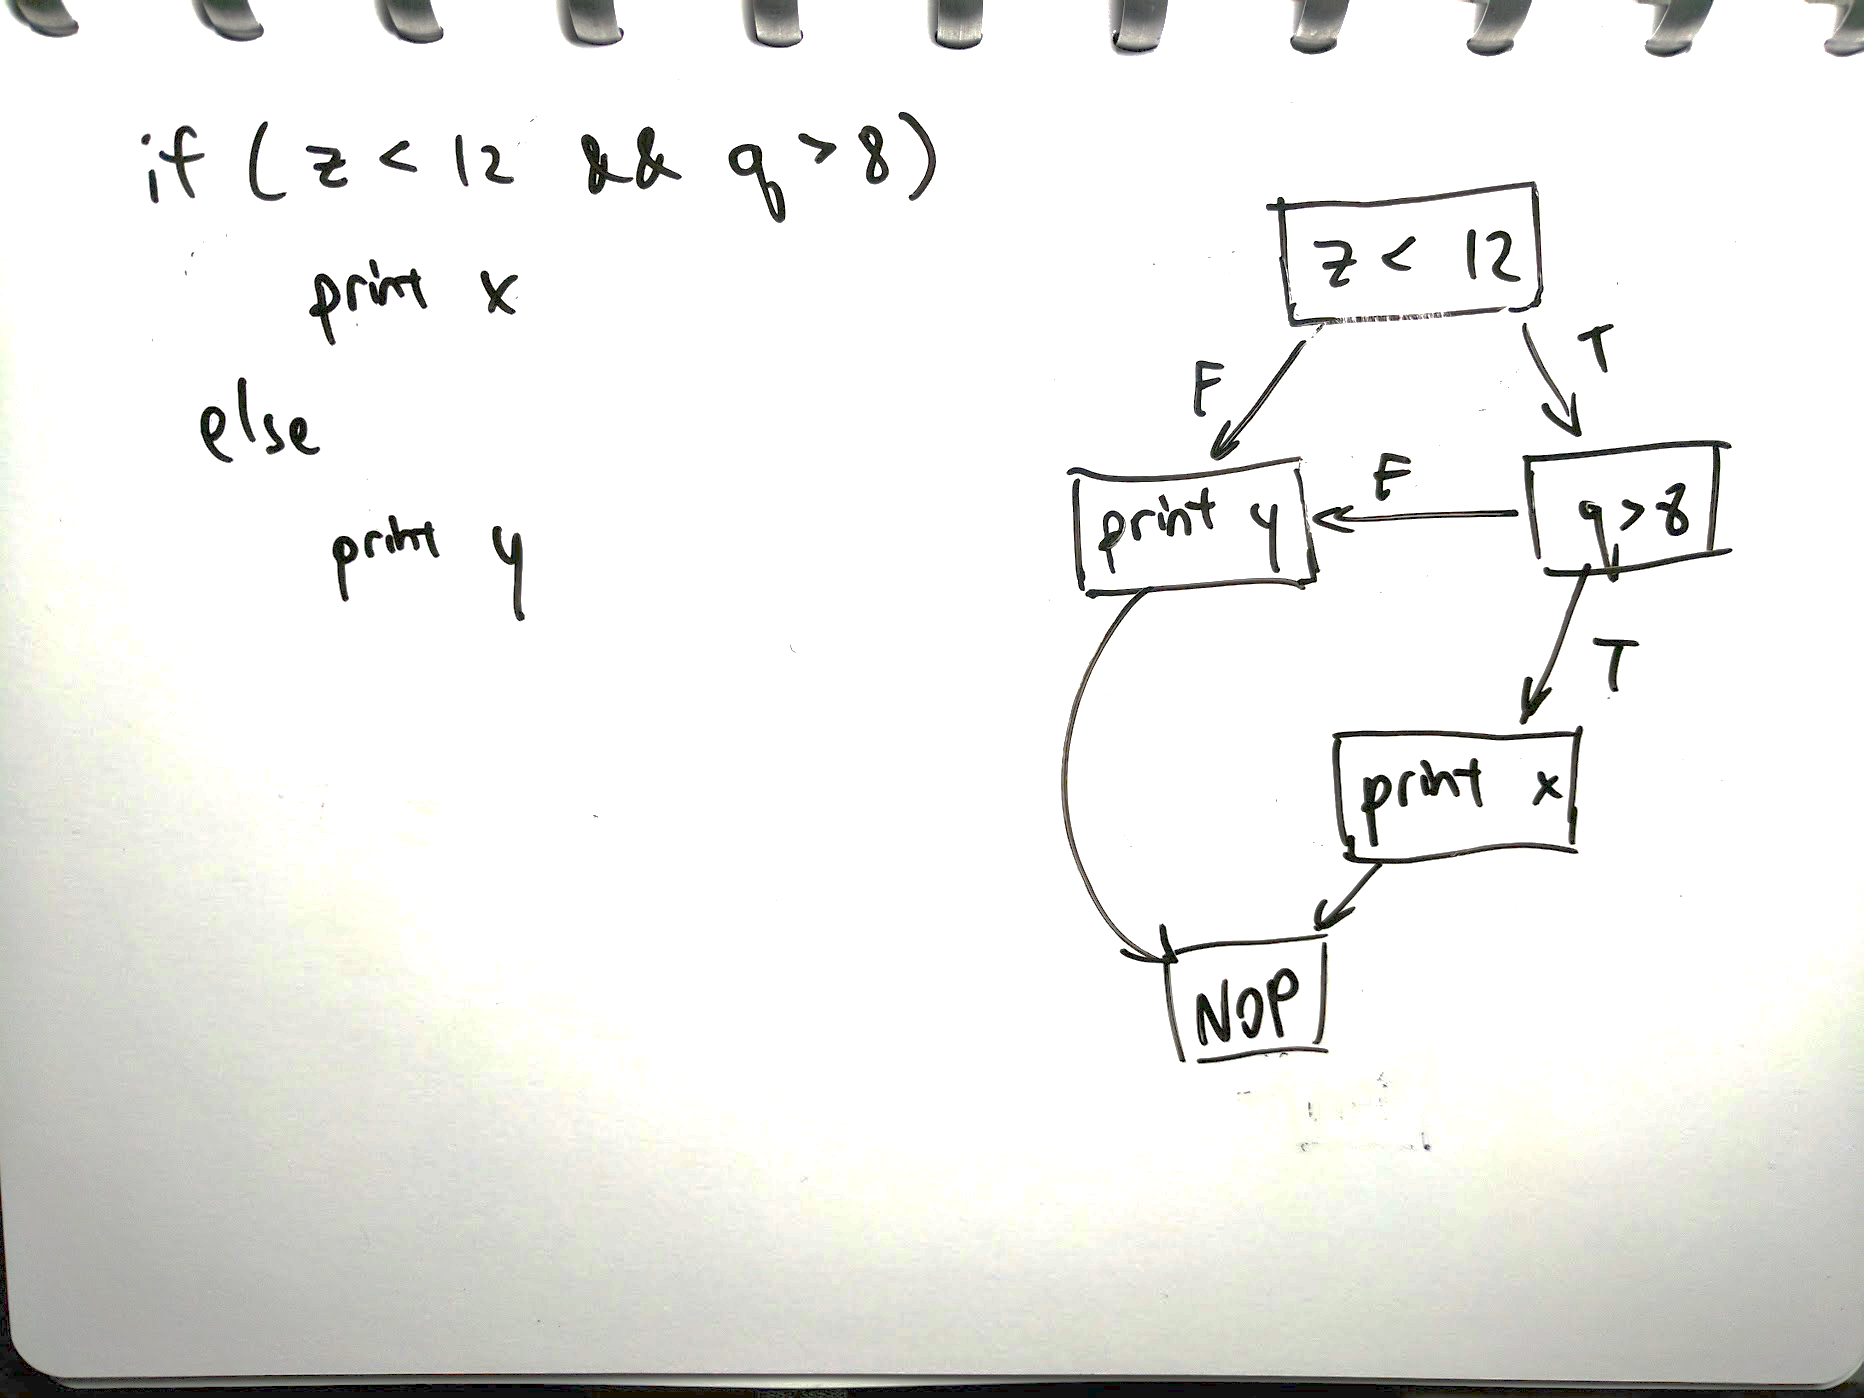 if ( z < 12 && q > 8)
print x
else
print y
z < 12
F
T
print y
F
q > 8
T
print x
NOP